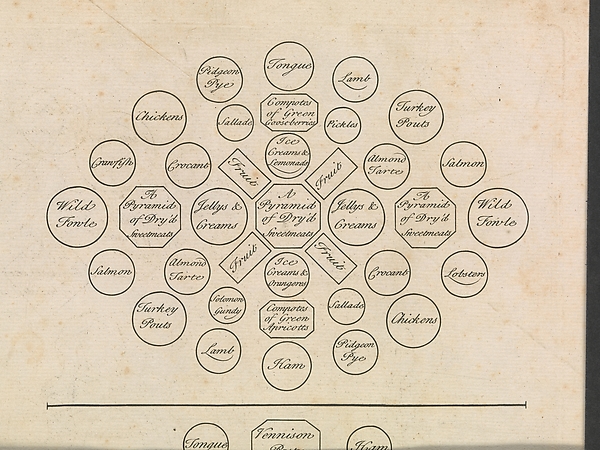 Tongue
Pidgeon
Pye
Lamb
Compotes
of Green
Gooseberries
Chickens
Sallade
Pickles
Turkey
Pouts
Ice
Creams &
Lemonads
Crawfish
Crocant
Fruit
Fruit
Almond
Tarte
Salmon
Wild
Fowle
A
Pyramid
of Dry'd
Sweetmeats
Jellys &
Creams
A
Pyramid
of Dry'd
Sweetmeats
Jellys &
Creams
A
Pyramid
of Dry'd
Sweetmeats
Wild
Fowle
Salmon
Almond
Tarte
Fruit
Ice
Creams &
Orangerns
Fruit
Crocant
Lobsters
Turkey
Pouts
Solomon
Gundy
Compotes
of Green
Apricotts
Sallade
Chickens
Lamb
Ham
Pidgeon
Pye
Tongue
Vennison
Ham